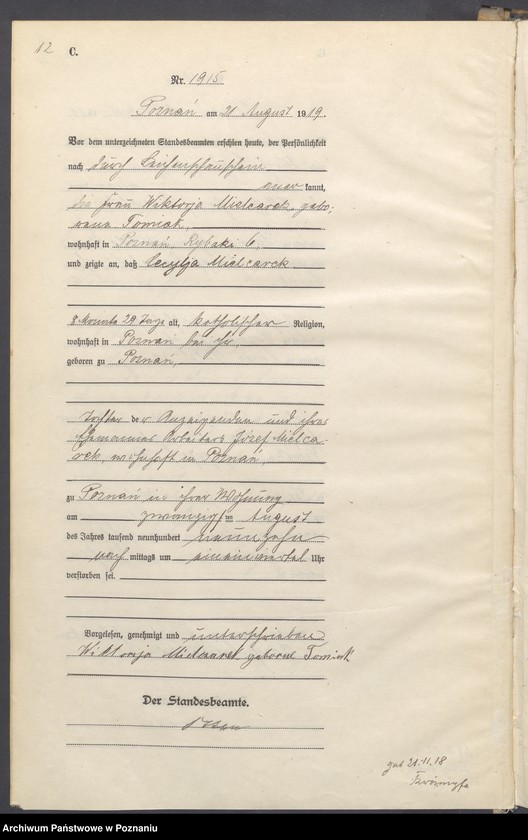 12 C.
Nr. 1915
Poznań am 21 August 1919.
Vor dem unterzeichneten Standesbeamten erschien heute, der Persönlichkeit
nach durch Leichenschauschein
aner kannt,
die Frau Wiktorja Mielcarek, gebo-
rene Tomiak,
wohnhaft in Poznań, Rybaki 6,
und zeigte an, daß Cecylja Mielcarek
8 Monate 29 Tage alt, katholischer Religion,
wohnhaft in Poznań bei ihr,
geboren zu Poznań,
Tochter der Anzeigenden und ihres
Ehemannes Arbeiters Józef Mielca-
rek, wohnhaft in Poznań,
zu Poznań in ihrer Wohnung
am zwanzigsten August
des Jahres tausend neunhundert neunzehn
nach mittags um einein viertel Uhr
verstorben sei.
Vorgelesen, genehmigt und unterschrieben
Wiktorja Mielcarek geborene Tomiak
Der Standesbeamte.
geb 21.11.18
Archiwum Państwowe w Poznaniu